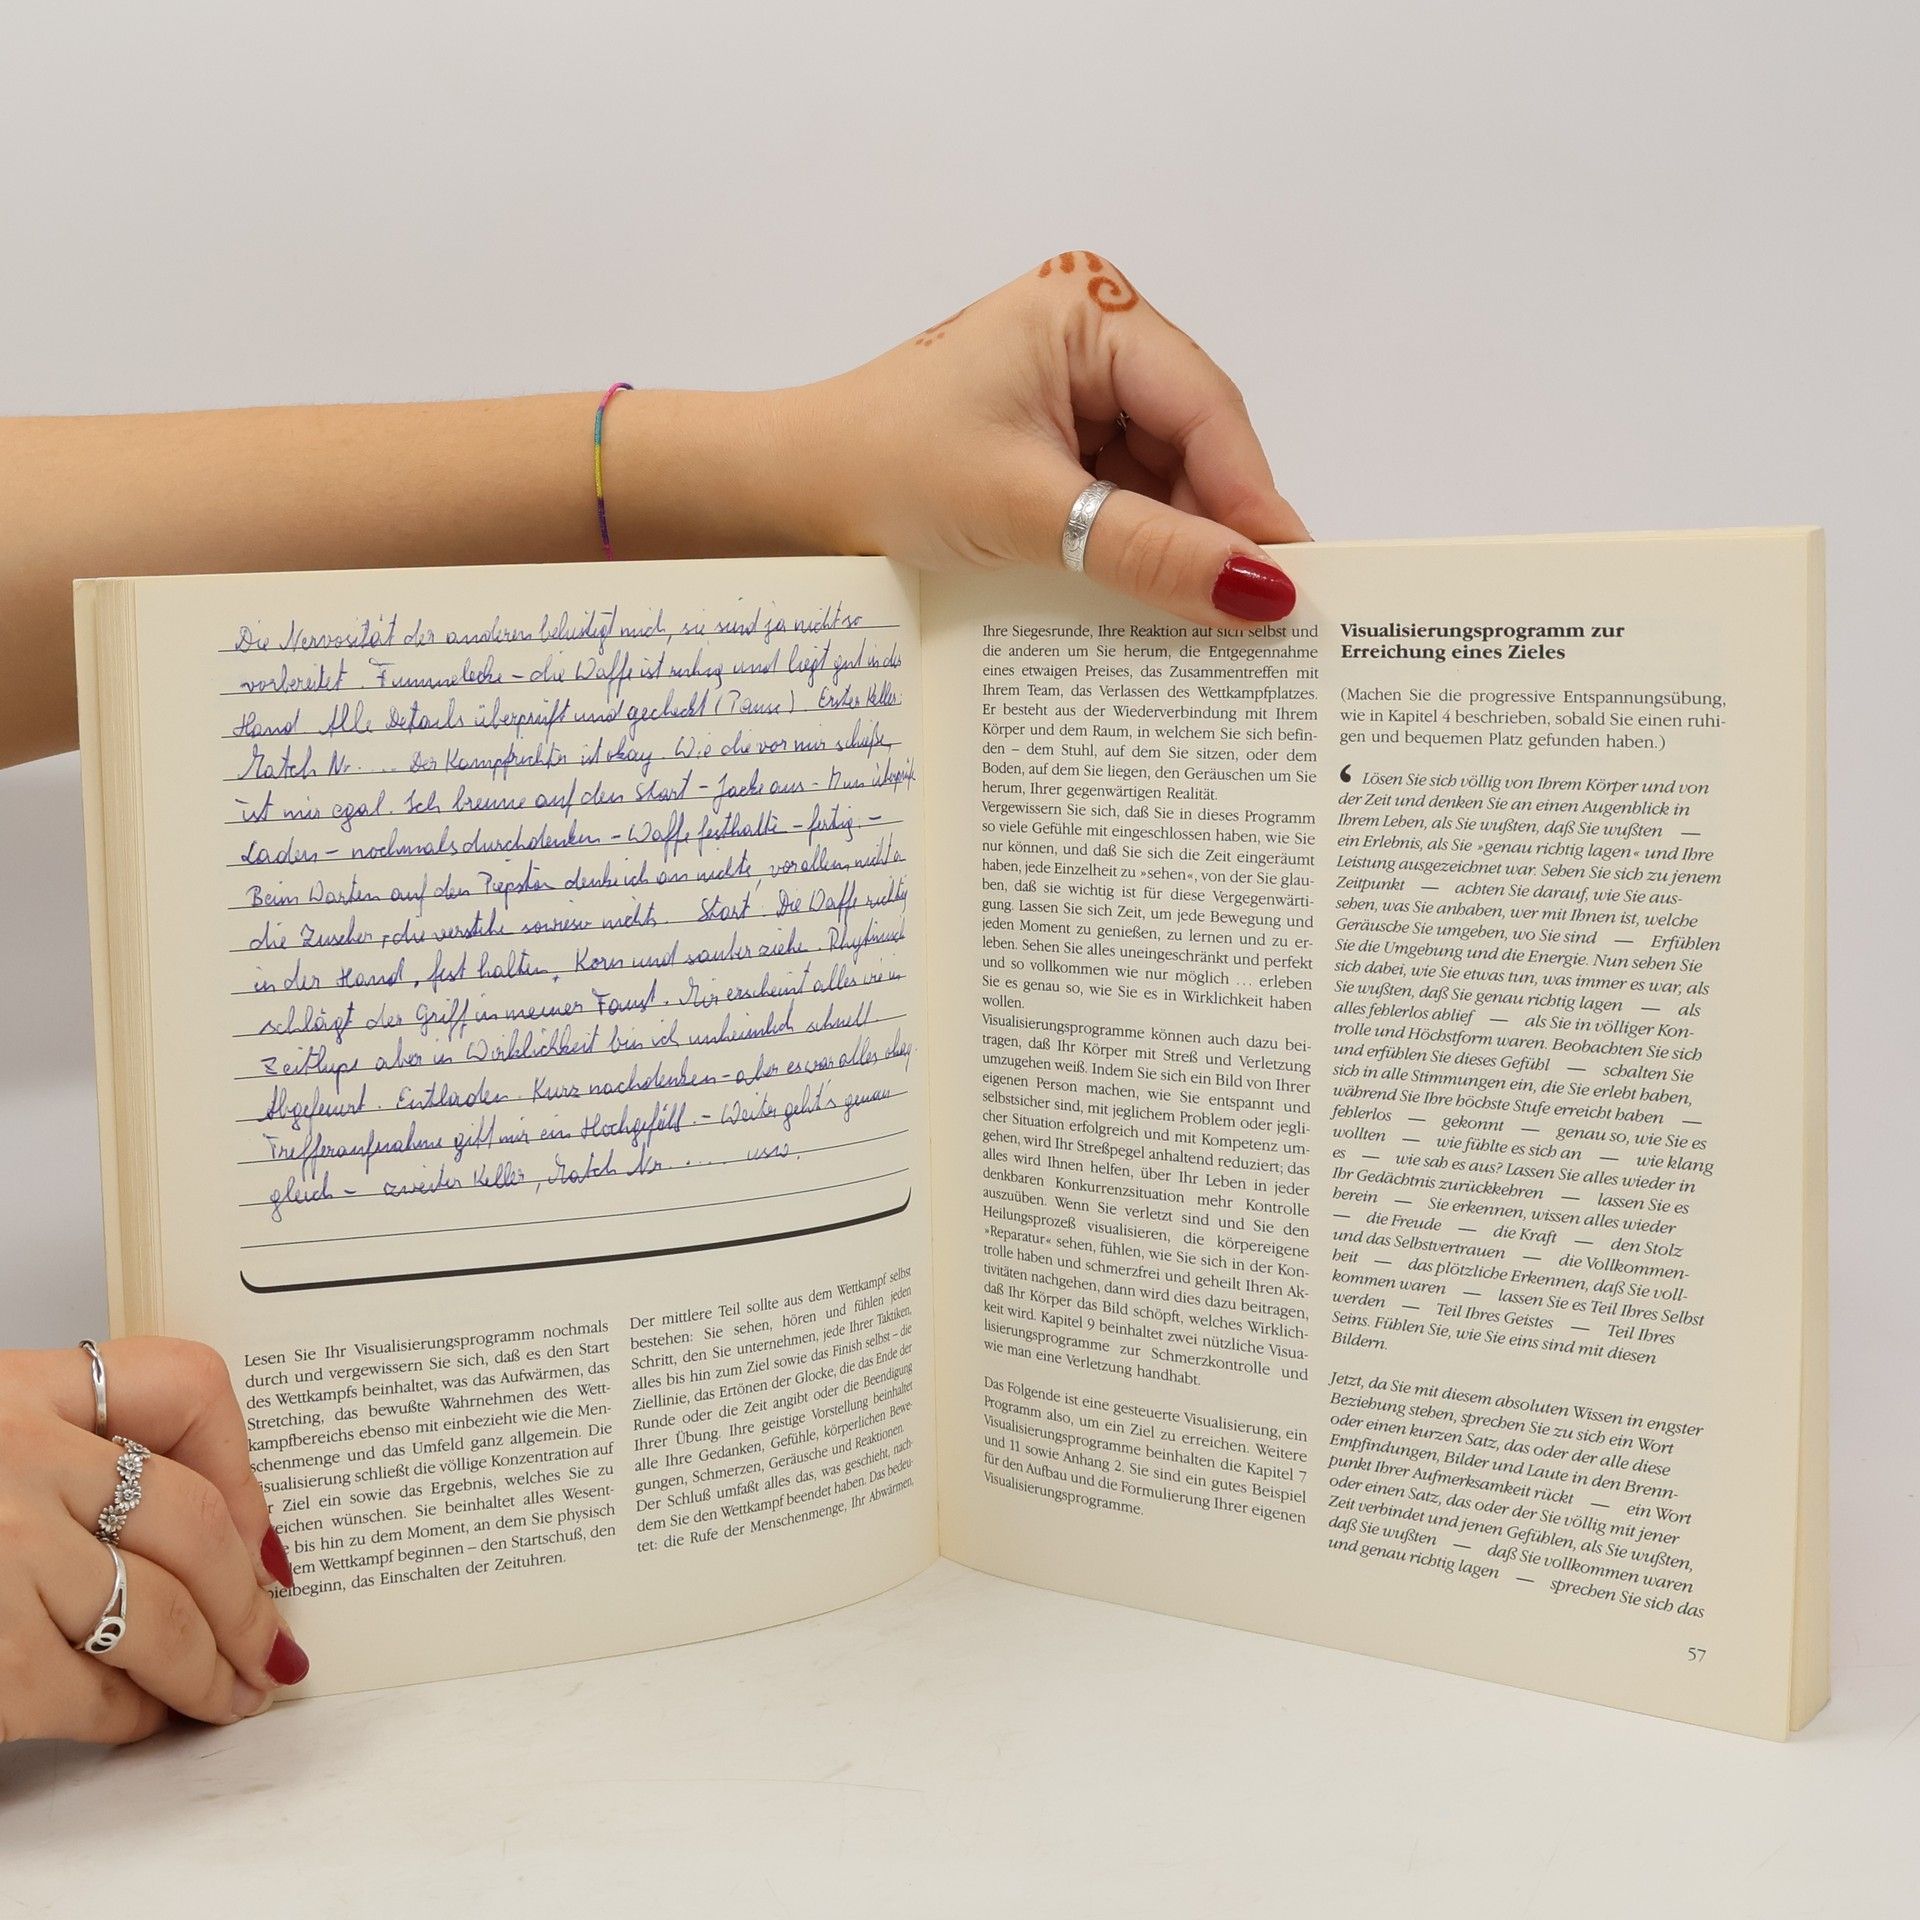 Die Nervosität der anderen belustigt mich, sie sind ja nicht so
vorbereitet. Fummelecke – die Waffe ist ruhig und liegt gut in der
Hand. Alle Details überprüft und gecheckt (Pause). Erster Keller:
Match Nr. .... Der Kampfrichter ist okay. Wie die vor mir schießen,
ist mir egal. Ich brenne auf den Start – Jacke aus – Mun überprüft
Laden – nochmals durchdenken – Waffe festhalte – fertig. –
Beim Warten auf den Piepston denke ich an nichts, vor allem nicht a
die Zuseher, die verstehe sowieso nichts. Start! Die Waffe richtig
in der Hand, fest halten, Korn und sauber ziehe. Rhythmisch
schlägt der Griff in meiner Faust. Mir erscheint alles wie in
Zeitlupe aber in Wirklichkeit bin ich unheimlich schnell.
Abgefeuert. Entladen. Kurz nachdenken – aber es war alles okay.
Trefferaufnahme gibt mir ein Hochgefühl. – Weiter geht's genau
gleich – zweiter Keller, Match Nr. .... usw.
Lesen Sie Ihr Visualisierungsprogramm nochmals
durch und vergewissern Sie sich, daß es den Start
des Wettkampfs beinhaltet, was das Aufwärmen, das
Stretching, das bewußte Wahrnehmen des Wett-
kampfbereichs ebenso mit einbezieht wie die Men-
schenmenge und das Umfeld ganz allgemein. Die
isualisierung schließt die völlige Konzentration auf
r Ziel ein sowie das Ergebnis, welches Sie zu
eichen wünschen. Sie beinhaltet alles Wesent-
e bis hin zu dem Moment, an dem Sie physisch
dem Wettkampf beginnen – den Startschuß, den
pielbeginn, das Einschalten der Zeituhren.
Der mittlere Teil sollte aus dem Wettkampf selbst
bestehen: Sie sehen, hören und fühlen jeden
Schritt, den Sie unternehmen, jede Ihrer Taktiken,
alles bis hin zum Ziel sowie das Finish selbst – die
Ziellinie, das Ertönen der Glocke, die das Ende der
Runde oder die Zeit angibt oder die Beendigung
Ihrer Übung. Ihre geistige Vorstellung beinhaltet
alle Ihre Gedanken, Gefühle, körperlichen Bewe-
gungen, Schmerzen, Geräusche und Reaktionen.
Der Schluß umfaßt alles das, was geschieht, nach-
dem Sie den Wettkampf beendet haben. Das bedeu-
tet: die Rufe der Menschenmenge, Ihr Abwärmen,
Ihre Siegesrunde, Ihre Reaktion auf sich selbst und
die anderen um Sie herum, die Entgegennahme
eines etwaigen Preises, das Zusammentreffen mit
Ihrem Team, das Verlassen des Wettkampfplatzes.
Er besteht aus der Wiederverbindung mit Ihrem
Körper und dem Raum, in welchem Sie sich befin-
den – dem Stuhl, auf dem Sie sitzen, oder dem
Boden, auf dem Sie liegen, den Geräuschen um Sie
herum, Ihrer gegenwärtigen Realität.
Vergewissern Sie sich, daß Sie in dieses Programm
so viele Gefühle mit eingeschlossen haben, wie Sie
nur können, und daß Sie sich die Zeit eingeräumt
haben, jede Einzelheit zu »sehen«, von der Sie glau-
ben, daß sie wichtig ist für diese Vergegenwärti-
gung. Lassen Sie sich Zeit, um jede Bewegung und
jeden Moment zu genießen, zu lernen und zu er-
leben. Sehen Sie alles uneingeschränkt und perfekt
und so vollkommen wie nur möglich ... erleben
Sie es genau so, wie Sie es in Wirklichkeit haben
wollen.
Visualisierungsprogramme können auch dazu bei-
tragen, daß Ihr Körper mit Streß und Verletzung
umzugehen weiß. Indem Sie sich ein Bild von Ihrer
eigenen Person machen, wie Sie entspannt und
selbstsicher sind, mit jeglichem Problem oder jegli-
cher Situation erfolgreich und mit Kompetenz um-
gehen, wird Ihr Streßpegel anhaltend reduziert; das
alles wird Ihnen helfen, über Ihr Leben in jeder
denkbaren Konkurrenzsituation mehr Kontrolle
auszuüben. Wenn Sie verletzt sind und Sie den
Heilungsprozeß visualisieren, die körpereigene
»Reparatur« sehen, fühlen, wie Sie sich in der Kon-
trolle haben und schmerzfrei und geheilt Ihren Ak-
tivitäten nachgehen, dann wird dies dazu beitragen,
daß Ihr Körper das Bild schöpft, welches Wirklich-
keit wird. Kapitel 9 beinhaltet zwei nützliche Visua-
lisierungsprogramme zur Schmerzkontrolle und
wie man eine Verletzung handhabt.
Das Folgende ist eine gesteuerte Visualisierung, ein
Programm also, um ein Ziel zu erreichen. Weitere
Visualisierungsprogramme beinhalten die Kapitel 7
und 11 sowie Anhang 2. Sie sind ein gutes Beispiel
für den Aufbau und die Formulierung Ihrer eigenen
Visualisierungsprogramme.
Visualisierungsprogramm zur
Erreichung eines Zieles
(Machen Sie die progressive Entspannungsübung,
wie in Kapitel 4 beschrieben, sobald Sie einen ruhi-
gen und bequemen Platz gefunden haben.)
‘ Lösen Sie sich völlig von Ihrem Körper und von
der Zeit und denken Sie an einen Augenblick in
Ihrem Leben, als Sie wußten, daß Sie wußten —
ein Erlebnis, als Sie »genau richtig lagen« und Ihre
Leistung ausgezeichnet war. Sehen Sie sich zu jenem
Zeitpunkt — achten Sie darauf, wie Sie aus-
sehen, was Sie anhaben, wer mit Ihnen ist, welche
Geräusche Sie umgeben, wo Sie sind — Erfühlen
Sie die Umgebung und die Energie. Nun sehen Sie
sich dabei, wie Sie etwas tun, was immer es war, als
Sie wußten, daß Sie genau richtig lagen — als
alles fehlerlos ablief — als Sie in völliger Kon-
trolle und Höchstform waren. Beobachten Sie sich
und erfühlen Sie dieses Gefühl — schalten Sie
sich in alle Stimmungen ein, die Sie erlebt haben,
während Sie Ihre höchste Stufe erreicht haben —
fehlerlos — gekonnt — genau so, wie Sie es
wollten — wie fühlte es sich an — wie klang
es — wie sah es aus? Lassen Sie alles wieder in
Ihr Gedächtnis zurückkehren — lassen Sie es
herein — Sie erkennen, wissen alles wieder
— die Freude — die Kraft — den Stolz
und das Selbstvertrauen — die Vollkommen-
heit — das plötzliche Erkennen, daß Sie voll-
kommen waren — lassen Sie es Teil Ihres Selbst
werden — Teil Ihres Geistes — Teil Ihres
Seins. Fühlen Sie, wie Sie eins sind mit diesen
Bildern.
Jetzt, da Sie mit diesem absoluten Wissen in engster
Beziehung stehen, sprechen Sie zu sich ein Wort
oder einen kurzen Satz, das oder der alle diese
Empfindungen, Bilder und Laute in den Brenn-
punkt Ihrer Aufmerksamkeit rückt — ein Wort
oder einen Satz, das oder der Sie völlig mit jener
Zeit verbindet und jenen Gefühlen, als Sie wußten,
daß Sie wußten — daß Sie vollkommen waren
und genau richtig lagen — sprechen Sie sich das
57